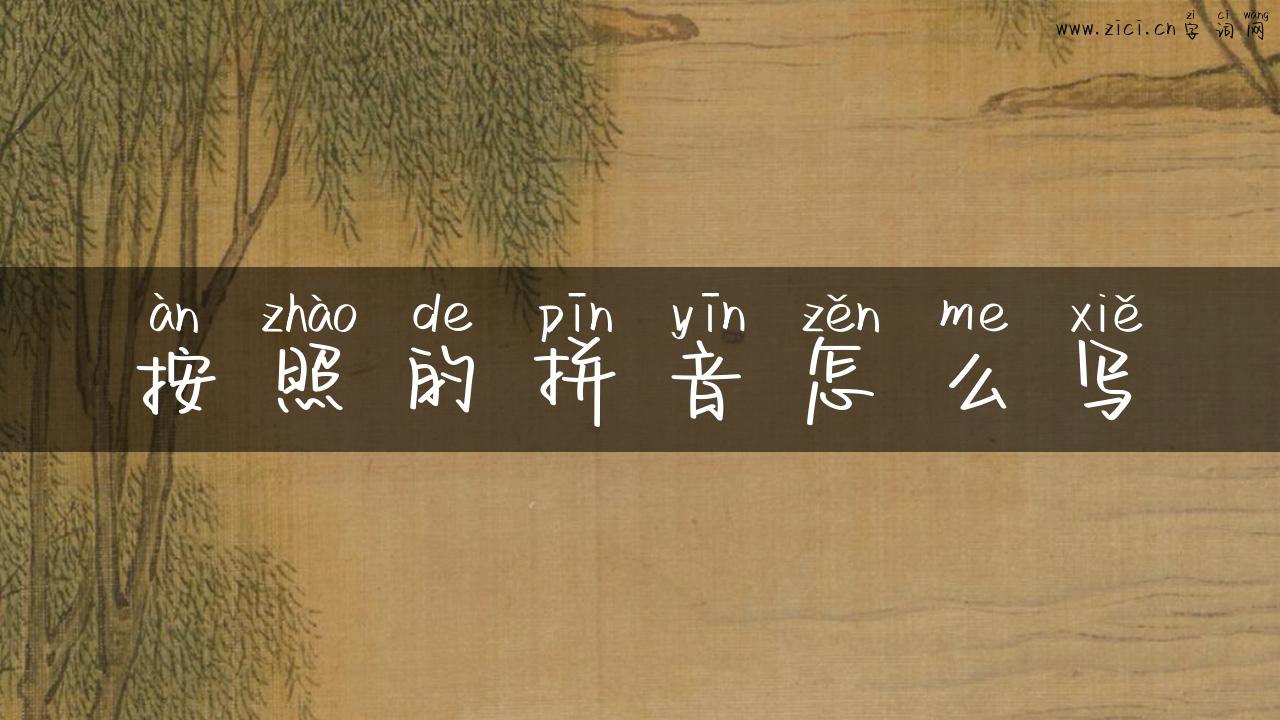 zì cí wǎng
www.zici.cn 字词网
àn zhào de pīn yīn zěn me xiě
按照的拼音怎么写